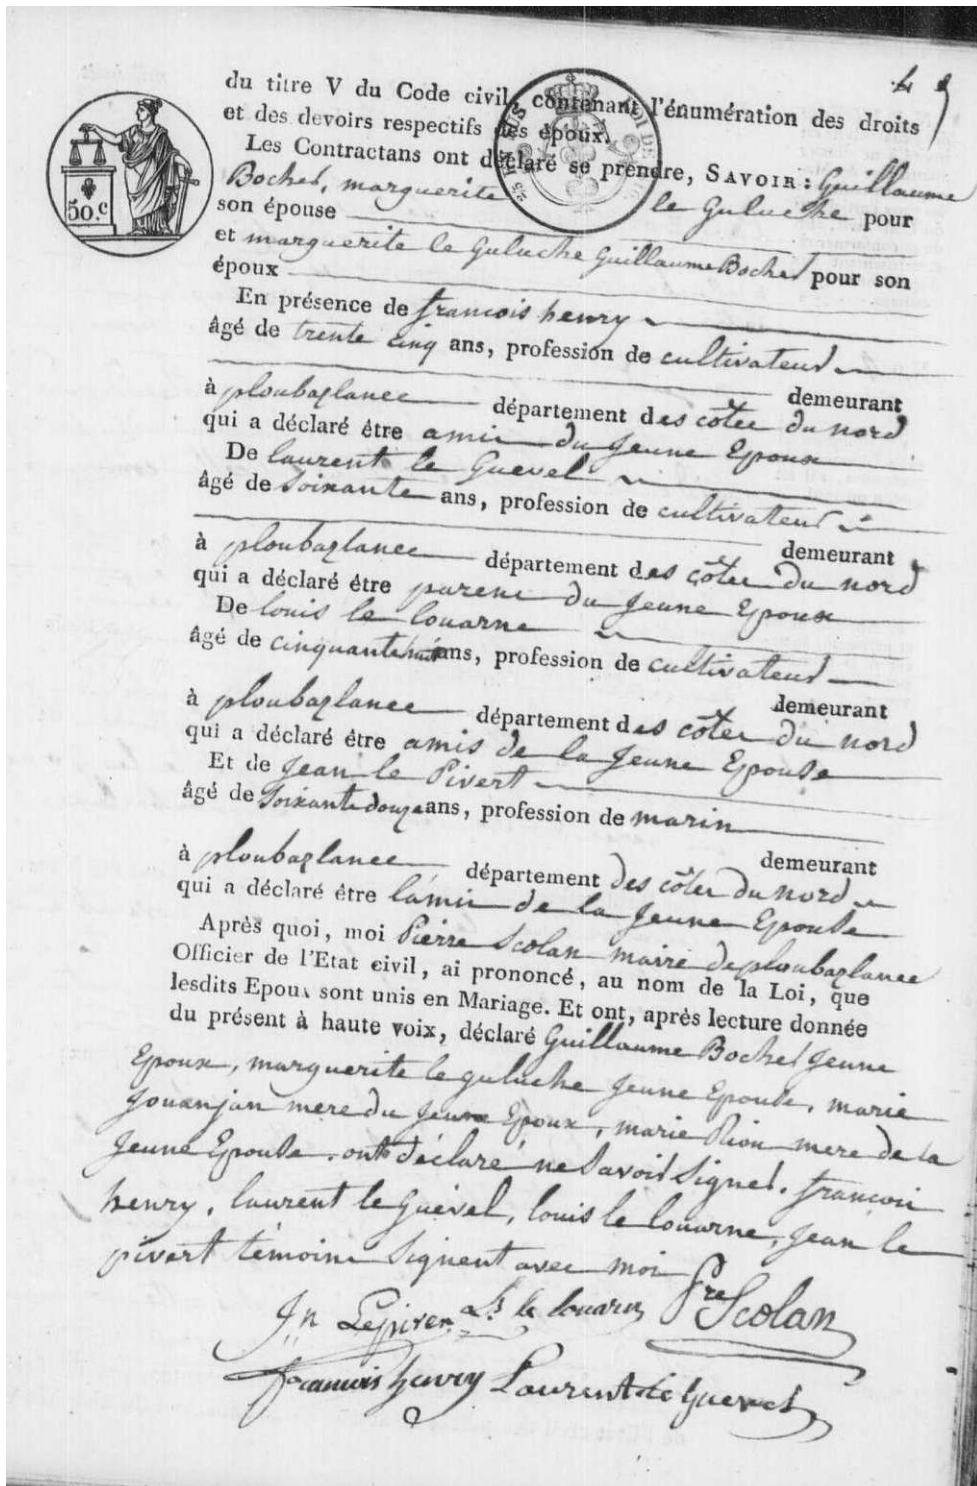 du titre V du Code civil, contenant l'énumération des droits
et des devoirs respectifs des époux.
Les Contractans ont déclaré se prendre, SAVOIR : Guillaume
Bochel, marguerite le Guluche pour
son épouse
et marguerite le Guluche Guillaume Bochel pour son
époux
En présence de francois henry
âgé de trente cinq ans, profession de cultivateur
demeurant
à ploubazlanec département des côtes du nord
qui a déclaré être amis du Jeune Epoux
De laurent le Guevel
âgé de Soixante ans, profession de cultivateur
demeurant
à ploubazlanec département des côtes du nord
qui a déclaré être parent du Jeune Epoux
De louis le louarne
âgé de cinquante huit ans, profession de cultivateur
demeurant
à ploubazlanec département des côtes du nord
qui a déclaré être amis de la Jeune Epouse
Et de Jean le Pivert
âgé de Soixante douze ans, profession de marin
demeurant
à ploubazlanec département des côtes du nord
qui a déclaré être l'amis de la Jeune Epouse
Après quoi, moi Pierre Scolan maire de ploubazlanec
Officier de l'Etat civil, ai prononcé, au nom de la Loi, que
lesdits Epoux sont unis en Mariage. Et ont, après lecture donnée
du présent à haute voix, déclaré Guillaume Bochel Jeune
Epoux, marguerite le guluche Jeune Epouse, marie
Jouanjan mere du Jeune Epoux, marie Rion mere de la
Jeune Epouse, ont déclaré ne Savoir Signer. francois
henry, laurent le guevel, louis le louarne, Jean le
pivert témoins Signent avec moi
Jn Lepiver Ls le louarn Pre Scolan
francois henry Laurent le guevel
50.c